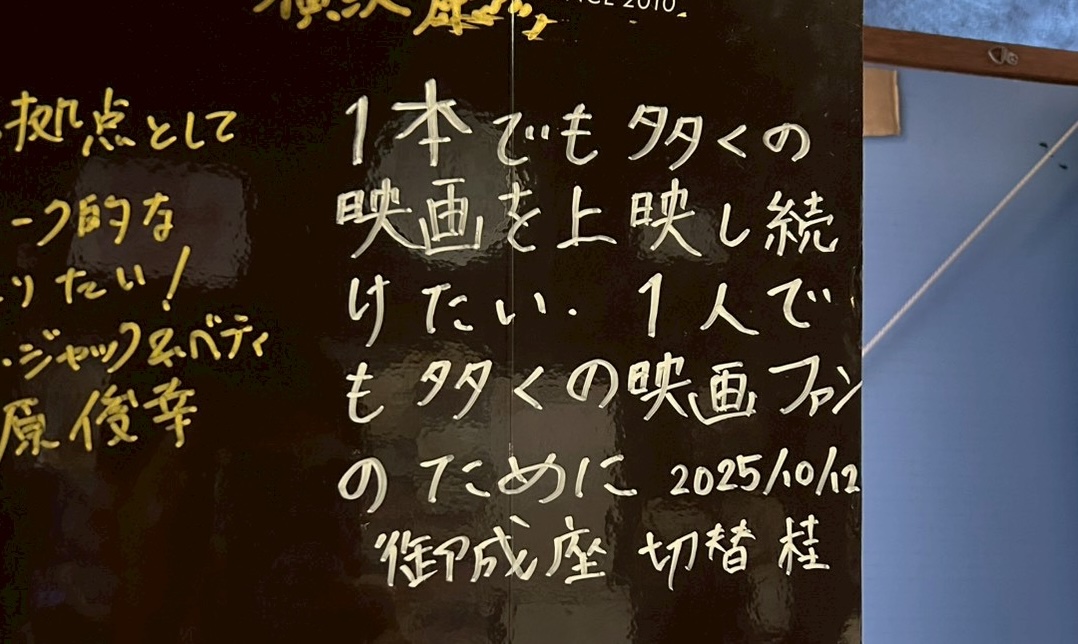 2010
拠点として
ーク的な
りたい!
ジャック&ベティ
原 俊幸
1本でも多くの
映画を上映し続
けたい. 1人で
も多くの映画ファン
のために 2025/10/12
御成座 切替 桂